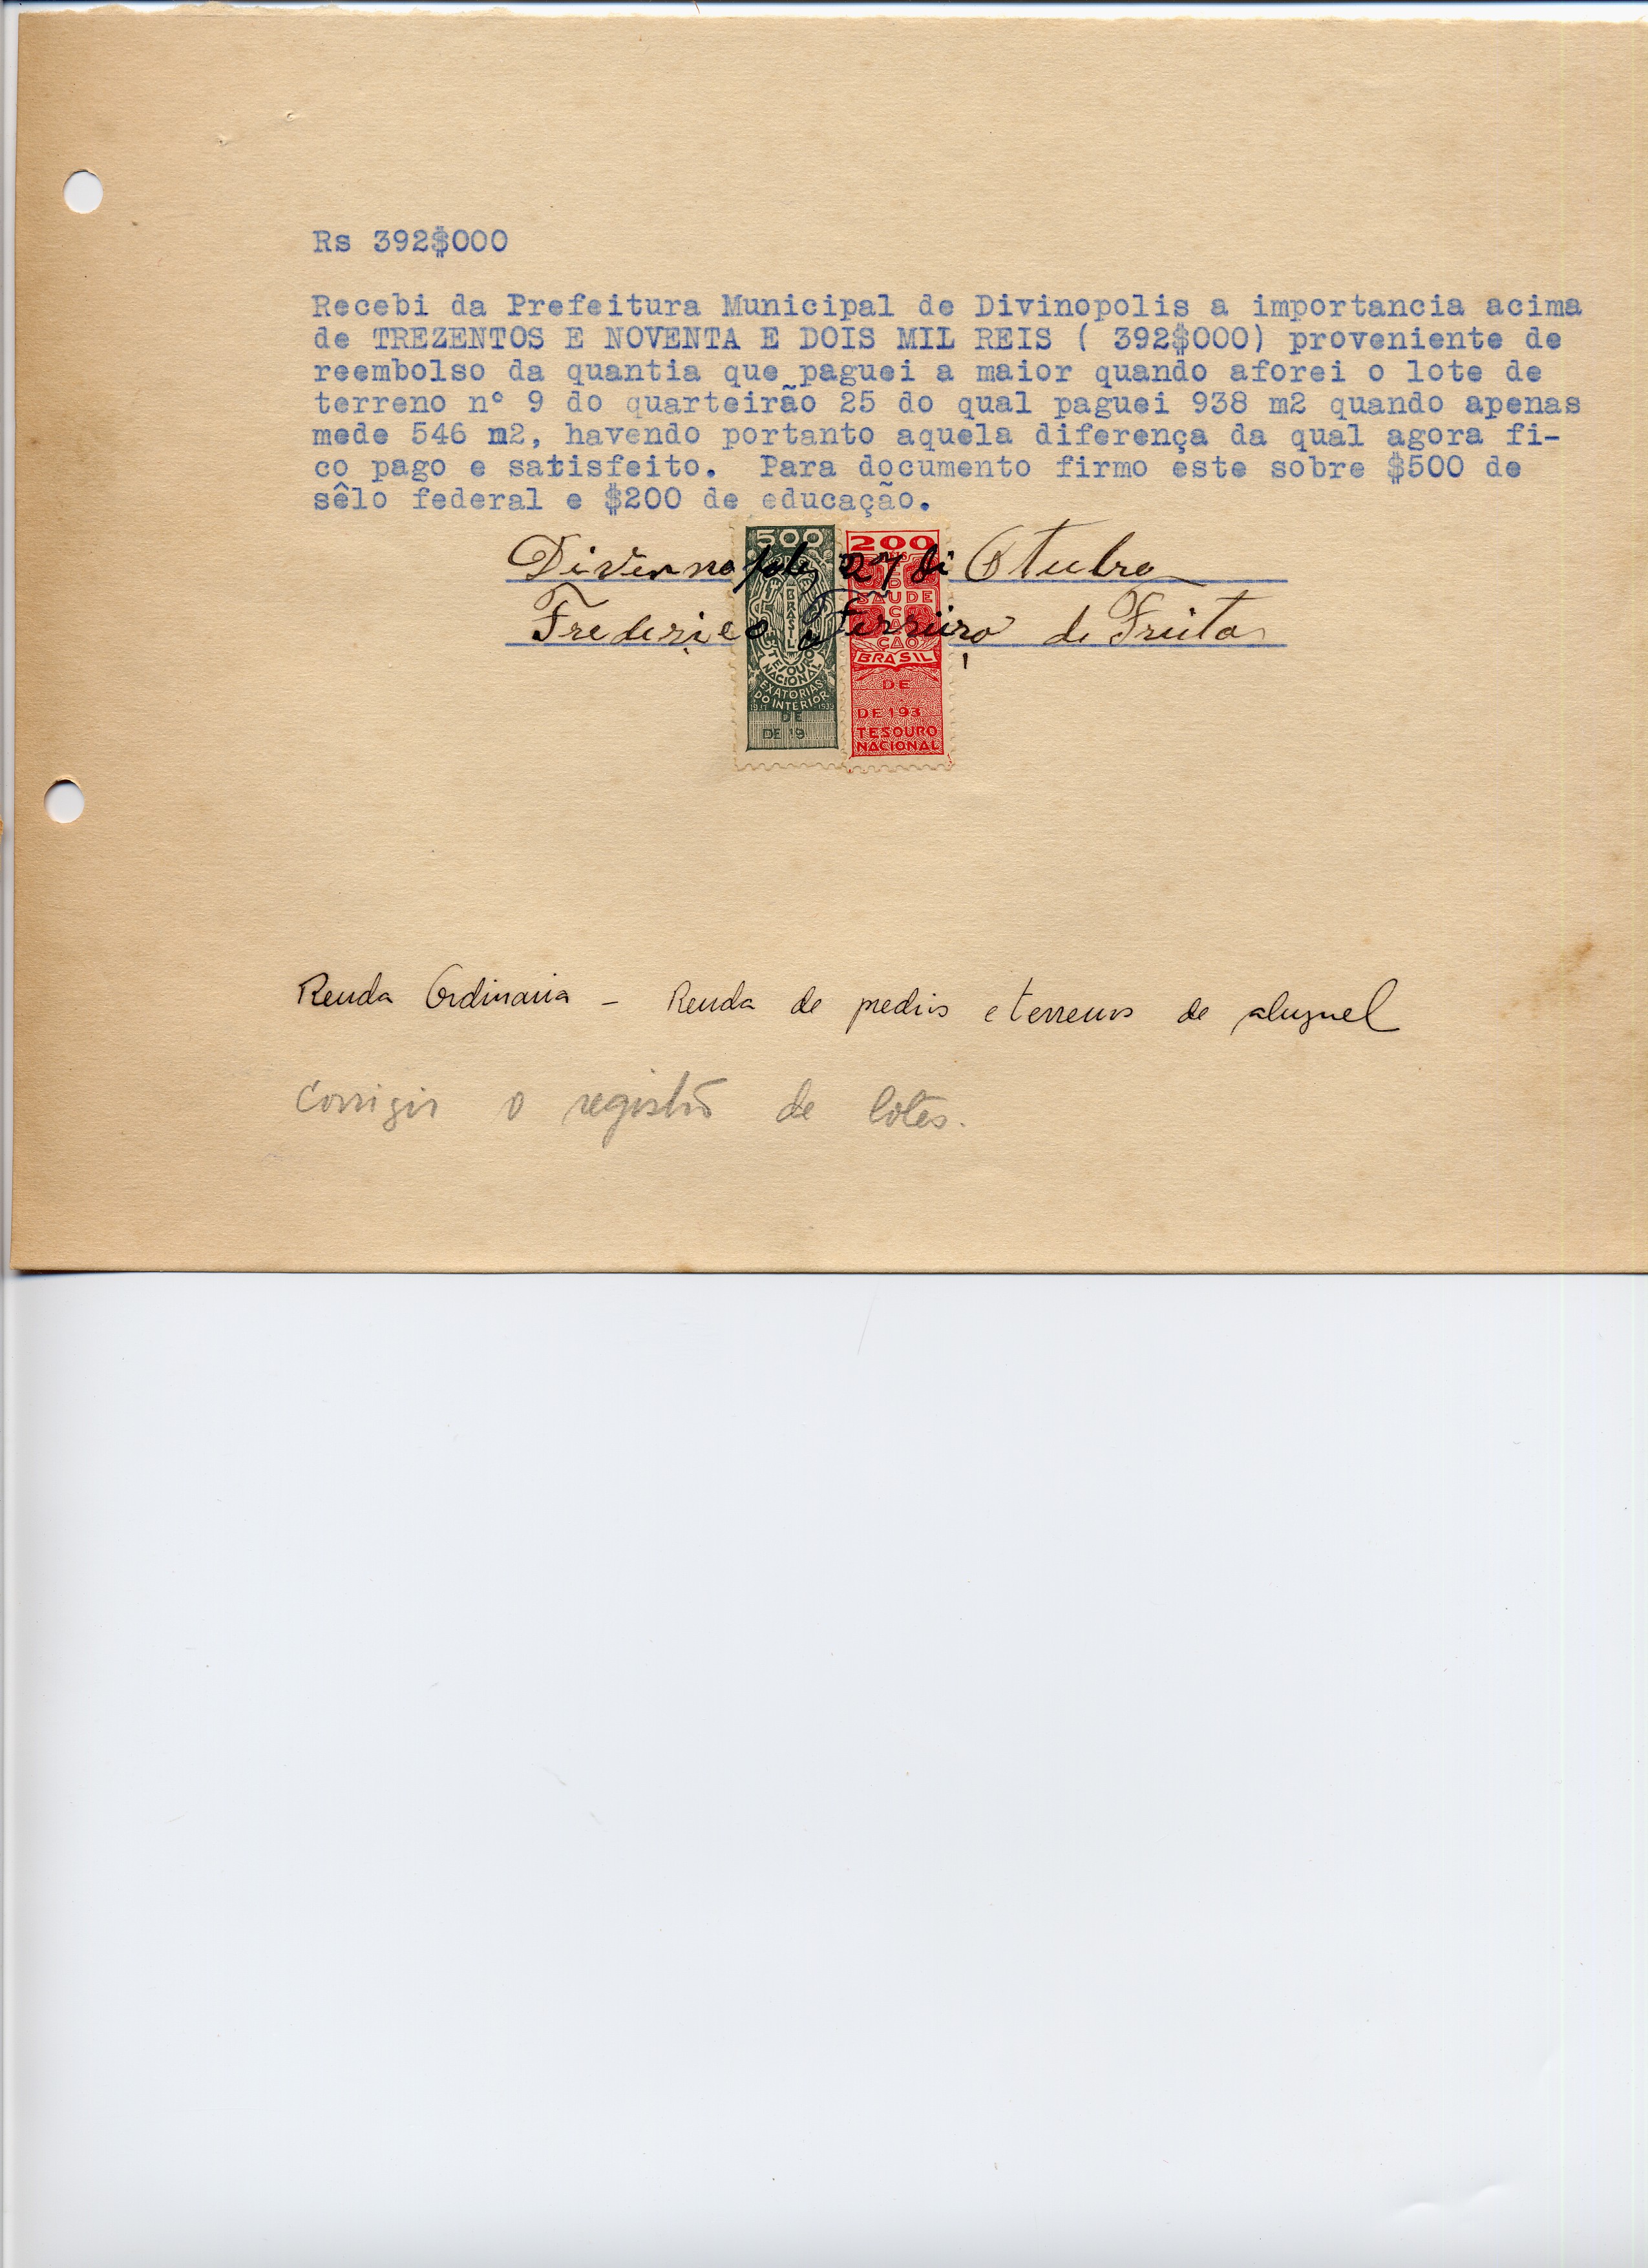 Rs 392$000
Recebi da Prefeitura Municipal de Divinopolis a importancia acima
de TREZENTOS E NOVENTA E DOIS MIL REIS ( 392$000) proveniente de
reembolso da quantia que paguei a maior quando aforei o lote de
terreno nº 9 do quarteirão 25 do qual paguei 938 m2 quando apenas
mede 546 m2, havendo portanto aquela diferença da qual agora fi-
co pago e satisfeito. Para documento firmo este sobre $500 de
sêlo federal e $200 de educação.
500 200
27 di Otubro
Frederico Ferreira di Freitas
SAUDE
BRASIL
CAÇÃO
TESOURO
NACIONAL
BRASIL
EXATORIAS
DO INTERIOR
DE
DE
DE 19
DE 193
TESOURO
NACIONAL
Renda Ordinaria - Renda de predios e terrenos de aluguel
Corrigir o registro de lotes.